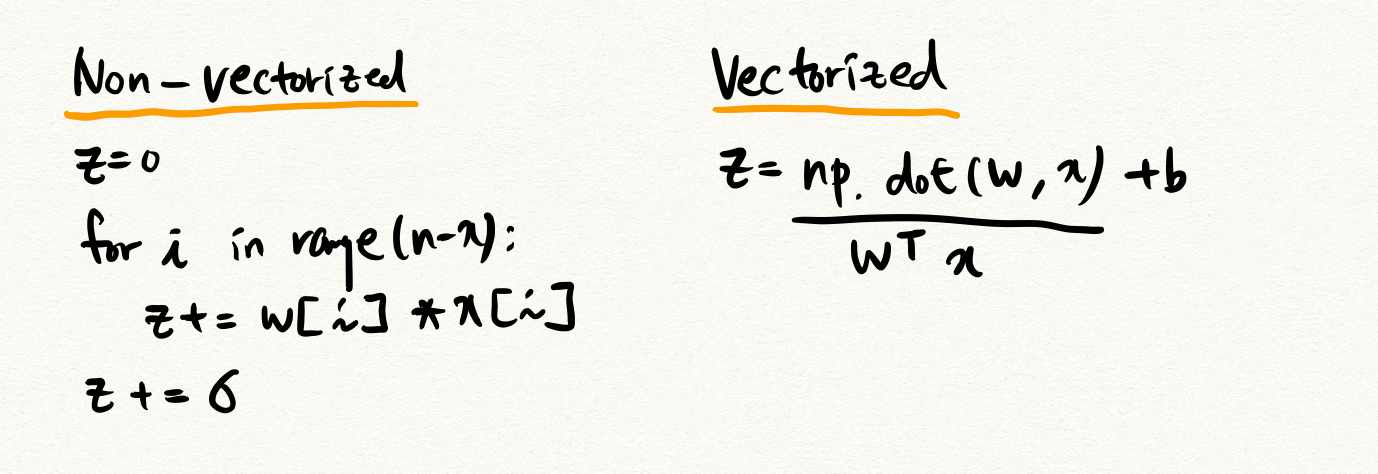 Non-vectorized
z=0
for i in range(n-x):
z+= w[i] * x[i]
z+= 6
Vectorized
z= np. dot(w, x) +b
wᵀ x